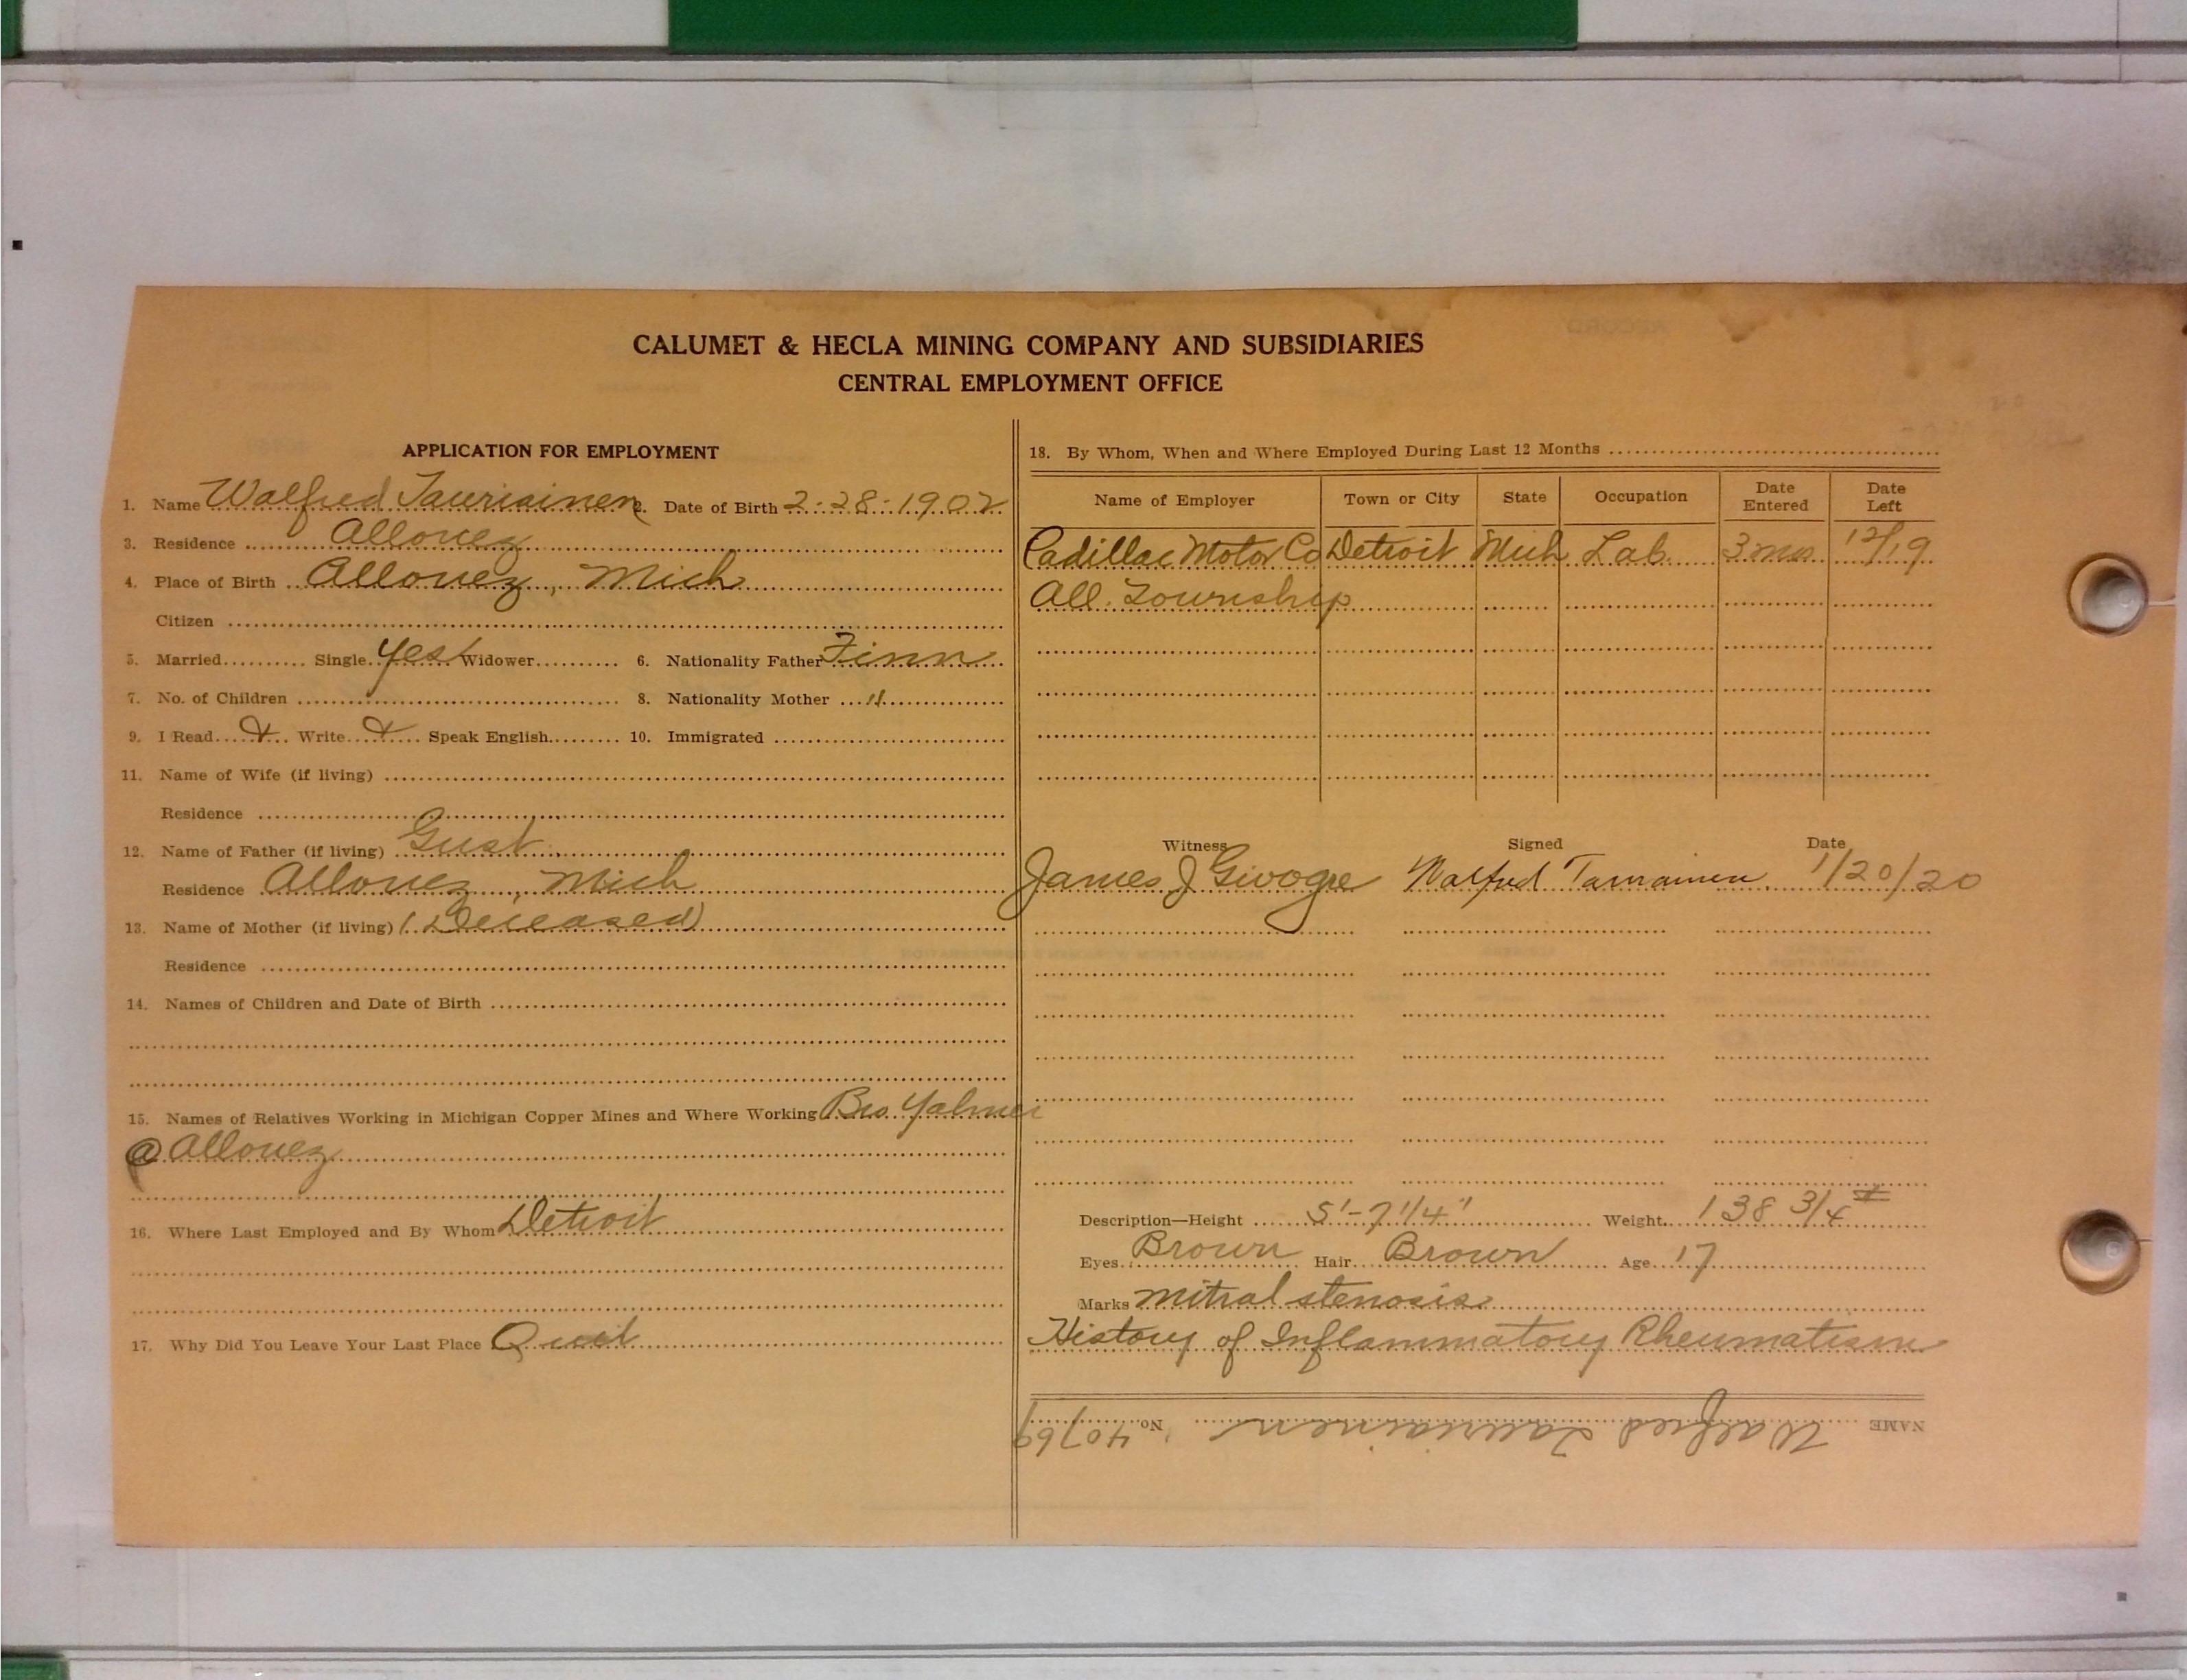 CALUMET & HECLA MINING COMPANY AND SUBSIDIARIES
CENTRAL EMPLOYMENT OFFICE
APPLICATION FOR EMPLOYMENT
1. Name Walfred Tauriainen 2. Date of Birth 2-28-1902
3. Residence Allouez
4. Place of Birth Allouez, Mich
Citizen
5. Married Single Yes Widower 6. Nationality Father Finn
7. No. of Children 8. Nationality Mother "
9. I Read & Write & Speak English 10. Immigrated
11. Name of Wife (if living)
Residence
12. Name of Father (if living) Gust
Residence Allouez, Mich
13. Name of Mother (if living) (Deceased)
Residence
14. Names of Children and Date of Birth
15. Names of Relatives Working in Michigan Copper Mines and Where Working Bro. Yalmer
@ Allouez
16. Where Last Employed and By Whom Detroit
17. Why Did You Leave Your Last Place Quit
18. By Whom, When and Where Employed During Last 12 Months
Name of Employer Town or City State Occupation Date Entered Date Left
Cadillac Motor Co Detroit Mich Lab. 3 mos. 12/19
All. Township
Witness Signed Date
James J Givogre Walfred Tauriainen 1/20/20
Description—Height 5'-7 1/4" Weight 138 3/4 #
Eyes Brown Hair Brown Age 17
Marks mitral stenosis
History of Inflammatory Rheumatism
NAME Walfred Tauriainen No. 40769